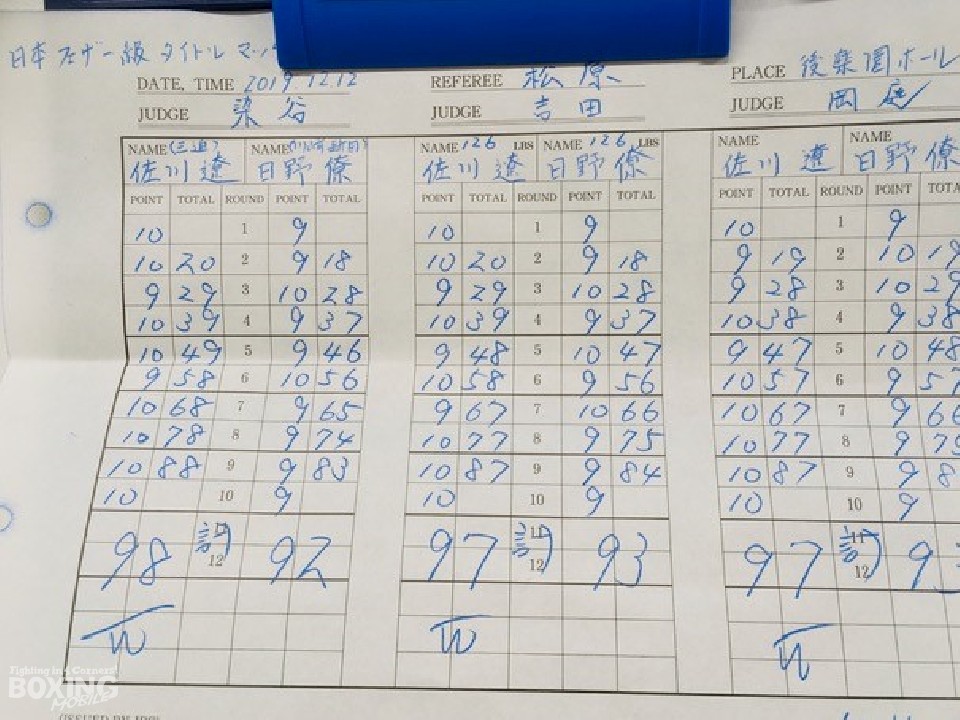 日本フェザー級タイトルマッ
DATE, TIME 2019.12.12 REFEREE 松原 PLACE 後楽園ホール
JUDGE 染谷 JUDGE 吉田 JUDGE 岡庭
NAME (三迫) NAME NAME 126 LBS NAME 126 LBS NAME NAME
佐川 遼 日野 僚 佐川 遼 日野 僚 佐川 遼 日野 僚
POINT TOTAL ROUND POINT TOTAL POINT TOTAL ROUND POINT TOTAL POINT TOTAL ROUND POINT TOTA
10 1 9 10 1 9 10 1 9
10 20 2 9 18 10 20 2 9 18 9 19 2 10 19
9 29 3 10 28 9 29 3 10 28 9 28 3 10 29
10 39 4 9 37 10 39 4 9 37 10 38 4 9 38
10 49 5 9 46 9 48 5 10 47 9 47 5 10 48
9 58 6 10 56 10 58 6 9 56 10 57 6 9 57
10 68 7 9 65 9 67 7 10 66 10 67 7 9 66
10 78 8 9 74 10 77 8 9 75 10 77 8 9 75
10 88 9 9 83 10 87 9 9 84 10 87 9 9 8
10 10 9 10 10 9 10 10 9
98 計 92 97 計 93 97 計 93
12 12 12
W W W
Fighting in 4 Corners!
BOXING
MOBILE